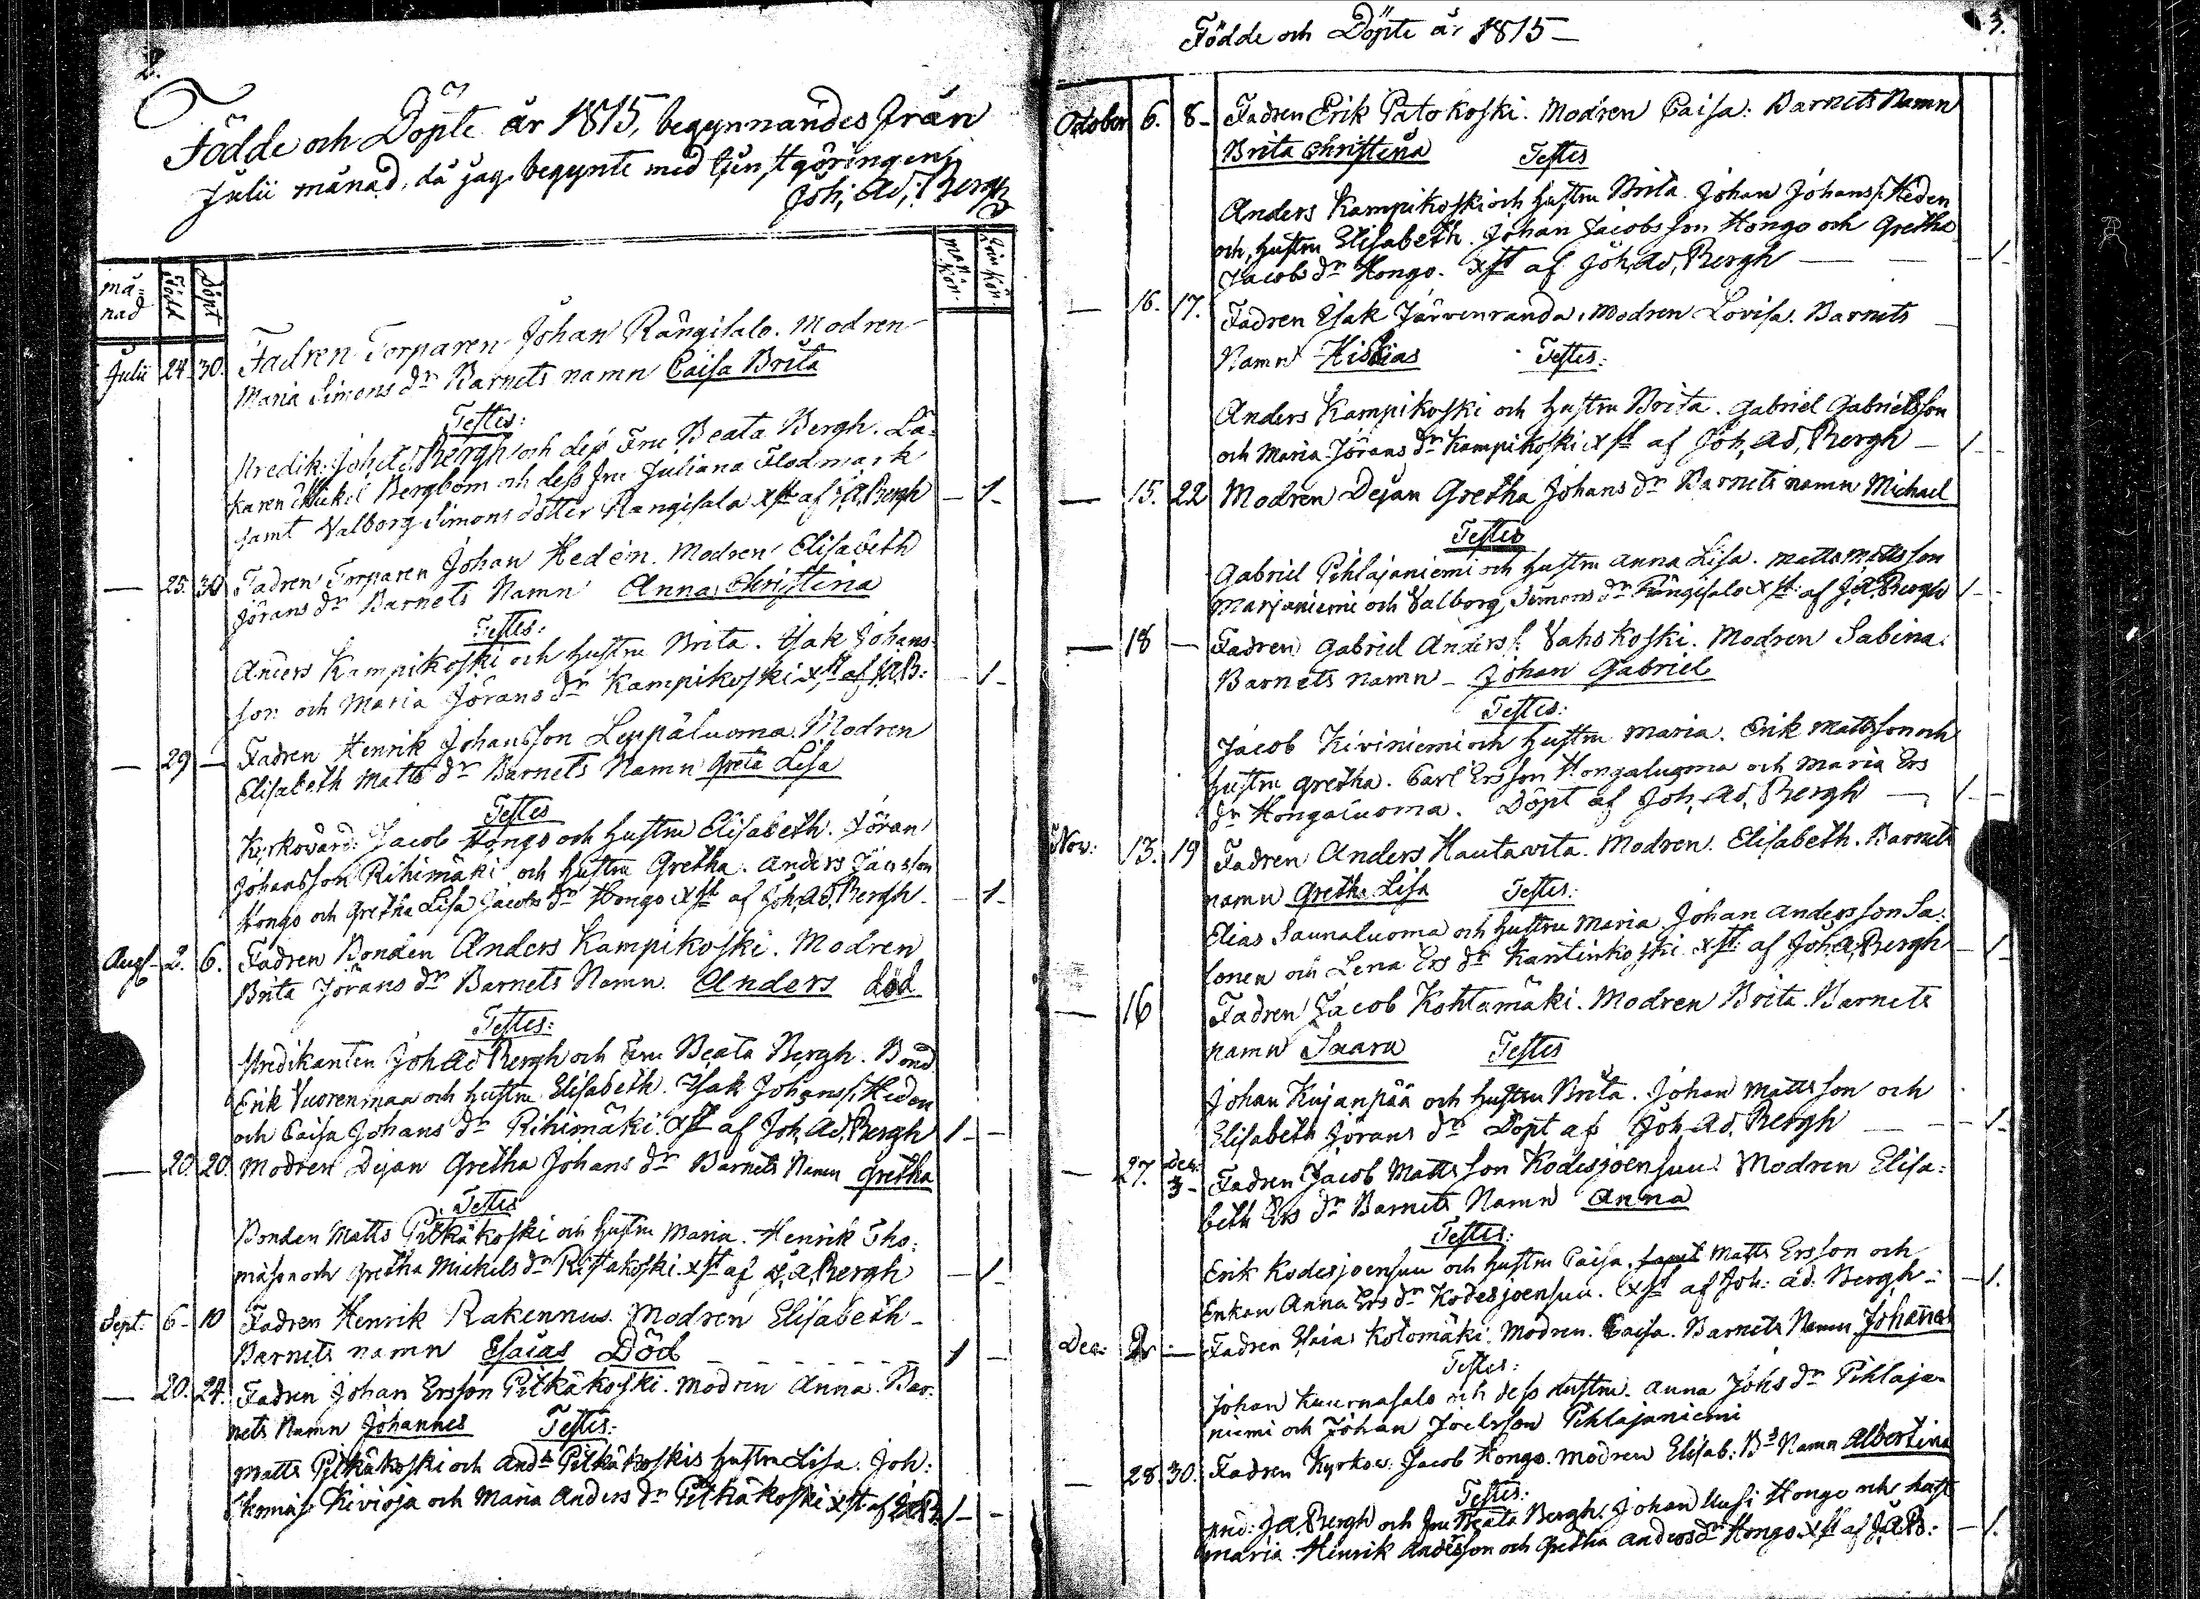 2.
Födde och Döpte år 1815, begynnandes från
Julii månad, då jag begynte med tjenstgöringen,
Joh; Ad; Bergh
må=
nad
Född
Döpt
man
kön
Qvin kön
Julii 24. 30. Fadren Torparen Johan Rängisalo. Modren
Maria Simons dr Barnets namn Caisa Brita
Testes:
Predik: Joh: Ad: Bergh och dess Fru Beata Bergh. Lä=
karen Mickel Bergbom och dess fru Juliana Flodmark
samt Valborg Simons dotter Rangisala xst af J.A.Bergh — 1 —
— 25. 30 Fadren Torparen Johan Hedén. Modren Elisabeth
Jörans dr Barnets Namn Anna Christina
Testes:
Anders Kampikoski och hustru Brita. Isak Johans=
son och Maria Jörans dr Kampikoski xst af J.A.B: — 1 —
— 29 — Fadren Henrik Johansson Leppäluoma. Modren
Elisabeth Matts dr Barnets Namn Greta Lisa
Testes
Kyrkovärd: Jacob Hongo och hustru Elisabeth. Jöran
Johansson Rihimäki och hustru Gretha. Anders Jacosson
Hongo och Gretha Lisa Jacobs dr Hongo xst af Joh, Ad, Bergh — — 1 —
Aug — 2. 6. Fadren Bonden Anders Kampikoski. Modren
Brita Jörans dr Barnets Namn. Anders död
Testes:
Predikanten Joh Ad Bergh och Fru Beata Bergh. Bond
Erik Vuorenmaa och hustru Elisabeth. Isak Johanss: Heden
och Caisa Johans dr Rihimäki. xst af Joh, Ad, Bergh 1 — —
— 20. 20. Modren Dejan Gretha Johans dr Barnets Namn Gretha
Testes
Bonden Matts Pitkäkoski och hustru Maria. Henrik Tho:
mason och Gretha Mickels dr Ristakoski xst af J,A,Bergh — 1 —
Sept: 6 — 10 Fadren Henrik Rakennus. Modren Elisabeth —
Barnets namn Esaias Död 1 —
— 20. 24. Fadren Johan Ersson Pitkäkoski. Modren Anna. Bar:
nets Namn Johannes Testes:
Matts Pitkäkoski och Ands Pitkäkoskis hustru Lisa. Joh:
Thomass Kivioja och Maria Anders dr Pitkäkoski xst af J.A.B. 1 — —
Födde och Döpte år 1815 —
3.
October 6. 8 — Fadren Erik Patokoski. Modren Caisa: Barnets Namn
Brita Christina Testes
Anders Kampikoski och hustru Brita. Johan Johanss: Heden
och, hustru Elisabeth. Johan Jacobsson Hongo och Gretha
Jacobs dr Hongo. xst af Joh, Ad, Bergh — — 1 —
— 16. 17. Fadren Esak Järvenranda. Modren Lovisa. Barnets
Namn Hiskias Testes:
Anders Kampikoski och hustru Brita. Gabriel Gabrielsson
och Maria Jörans dr Kampikoski xst af Joh, Ad, Bergh — 1 —
— 15. 22 Modren Dejan Gretha Johans dr Barnets namn Michael
Testes
Gabriel Pihlajaniemi och hustru Anna Lisa. Matts Mattsson
Marjaniemi och Valborg Simons dr Rängisalo xst: af J.A.Bergh 1 — —
— 18 — Fadren Gabriel Anders s: Vahokoski. Modren Sabina.
Barnets namn — Johan Gabriel
Testes:
Jacob Kiviniemi och hustru Maria. Erik Mattsson och
hustru Gretha. Carl Ersson Hongaluoma och Maria Ers
dr Hongaluoma. Döpt af Joh, Ad, Bergh — 1 — —
Nov: 13. 19 Fadren Anders Hautavita. Modren. Elisabeth. Barnets
namn Gretha Lisa Testes:
Elias Saunaluoma och hustru Maria Johan Andersson Sa:
lonen och Lena Ers dr Kantinkoski xst: af Joh, A, Bergh — 1 —
— 16 Fadren Jacob Kohtamäki. Modren Brita. Barnets
namn Snara Testes
Johan Kujanpää och hustru Brita. Johan Mattsson och
Elisabeth Jörans dr Döpt af Joh Ad, Bergh — — 1 —
— 27. Dec: 3 — Fadren Jacob Mattsson Kodesjoensuu. Modren Elisa:
beth Ers dr Barnets Namn Anna
Testes:
Erik Kodesjoensuu och hustru Caisa, samt Matts Ersson och
Enkan Anna Ers dr Kodesjoensuu. xst af Joh: Ad: Bergh — — 1.
Dec: 2 — Fadren Esaias Kotomäki. Modren. Caisa. Barnets Namn Johannes
Testes:
Johan Kuurnasalo och dess hustru. Anna Johs dr Pihlaja=
niemi och Johan Joelsson Pihlajaniemi
— 28 30. Fadren Kyrkov: Jacob Hongo. Modren Elisab: Bs Namn Albertina
Testes:
pred: J.A.Bergh och fru Beata Bergh. Johan Uusi Hongo och hust
Maria. Henrik Andersson och Gretha Anders dr Hongo xst af J.A.B: — 1.